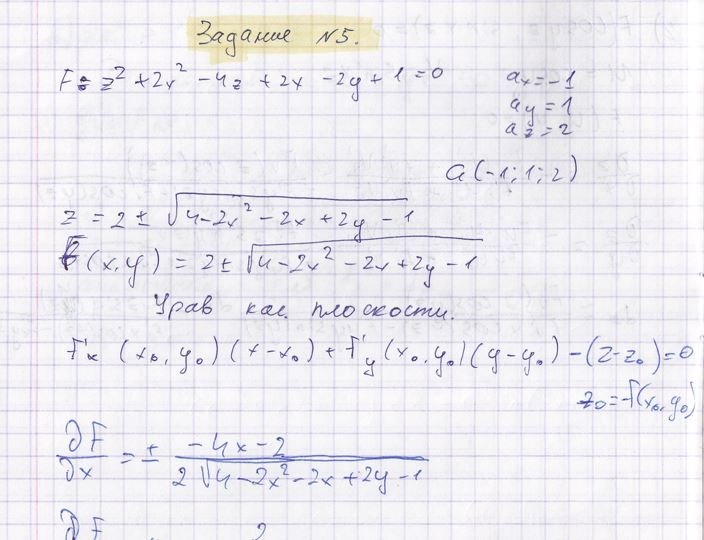 Задание N5.
F = z² + 2x² - 4z + 2x - 2y + 1 = 0
aₓ = -1
a_y = 1
a_z = 2
a(-1; 1; 2)
z = 2 ± √(4 - 2x² - 2x + 2y - 1)
F(x,y) = 2 ± √(4 - 2x² - 2x + 2y - 1)
Урав кас. плоскости.
F'ₓ (x₀, y₀)(x - x₀) + F'_y (x₀, y₀)(y - y₀) - (z - z₀) = 0
z₀ = f(x₀, y₀)
∂F/∂x = ± (-4x - 2)/(2√(4 - 2x² - 2x + 2y - 1))
∂F 2